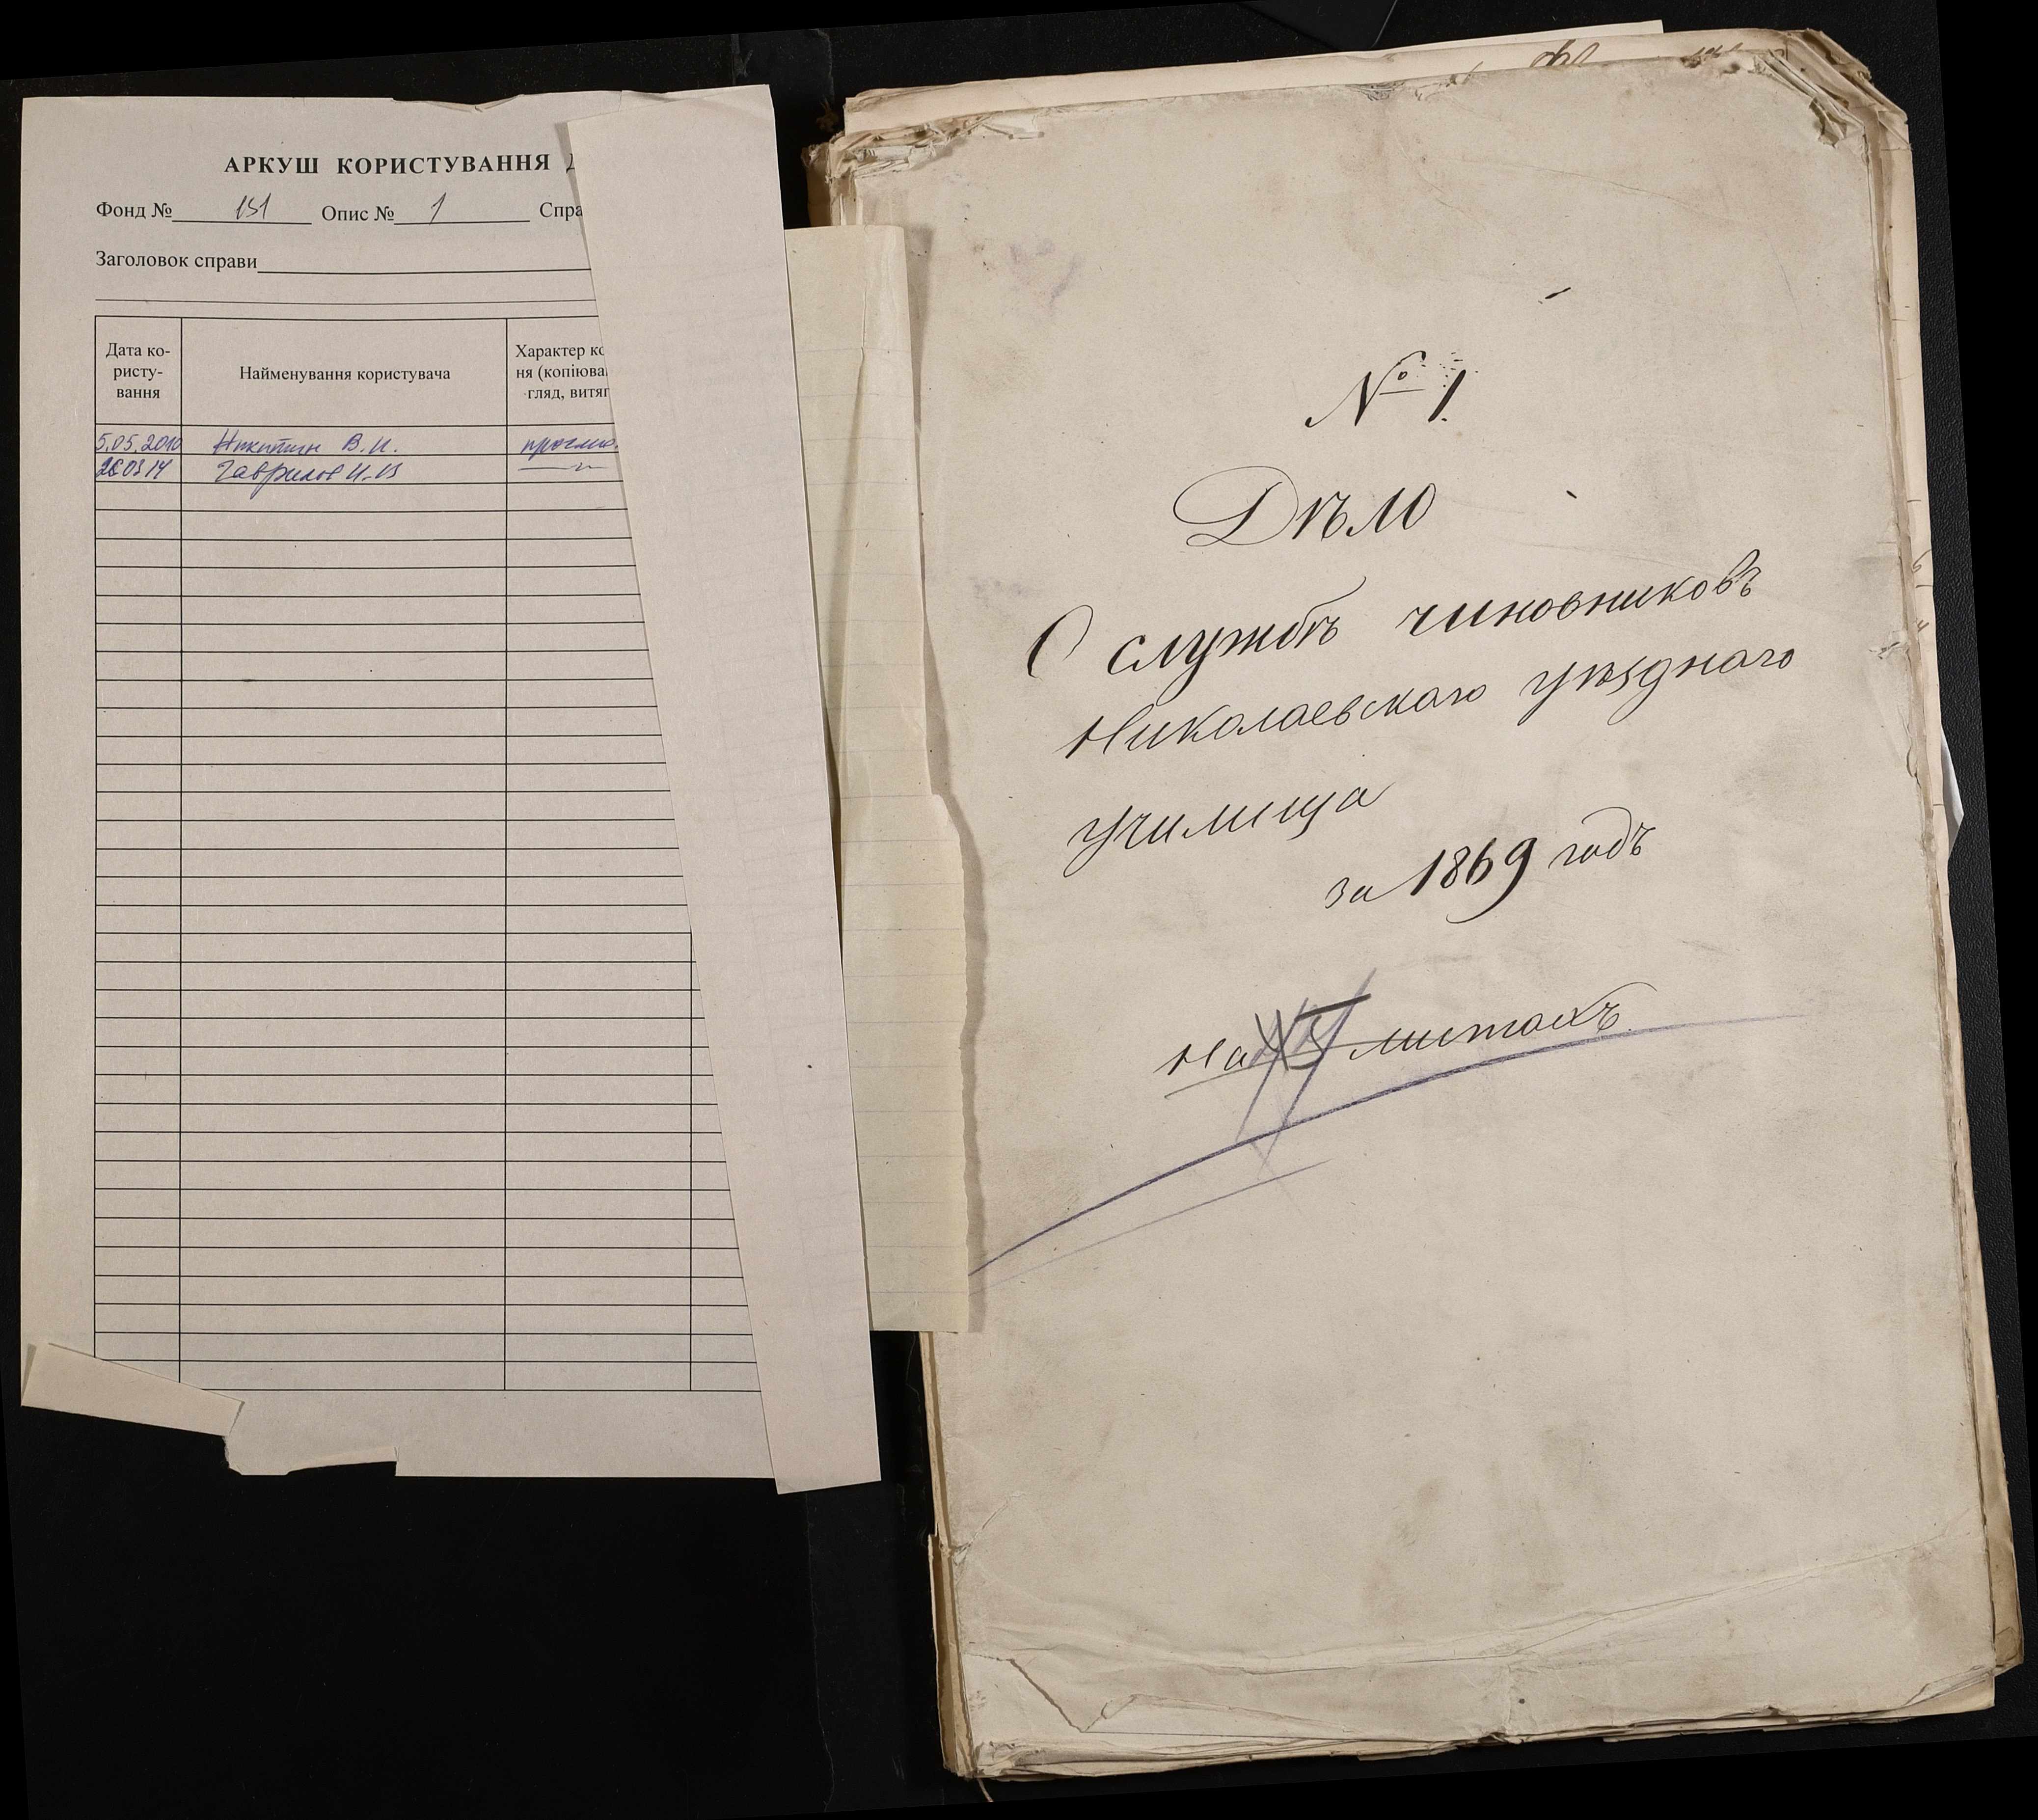 АРКУШ КОРИСТУВАННЯ
Фонд № 151 Опис № 1 Спра
Заголовок справи
Дата ко-
ристу-
вання
Найменування користувача
Характер ко
ня (копіюва
гляд, витяг
5.05.2010 Никитин В.И.
26 03 14 Гаврилов И.В
№ 1.
Дѣло
О службѣ чиновниковъ
Николаевскаго уѣзднаго
училища
за 1869 годъ
На листахъ.